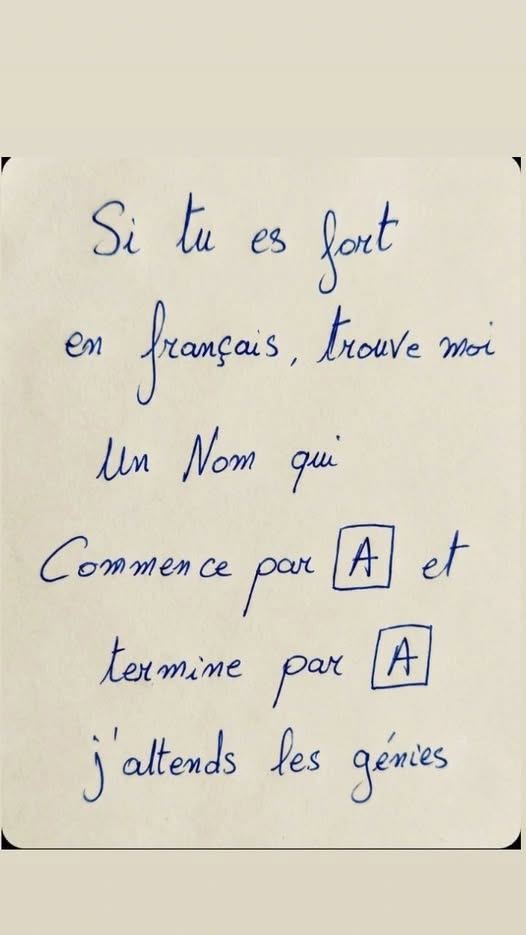 Si tu es fort
en français, trouve moi
Un Nom qui
Commence par A et
termine par A
j'attends les génies